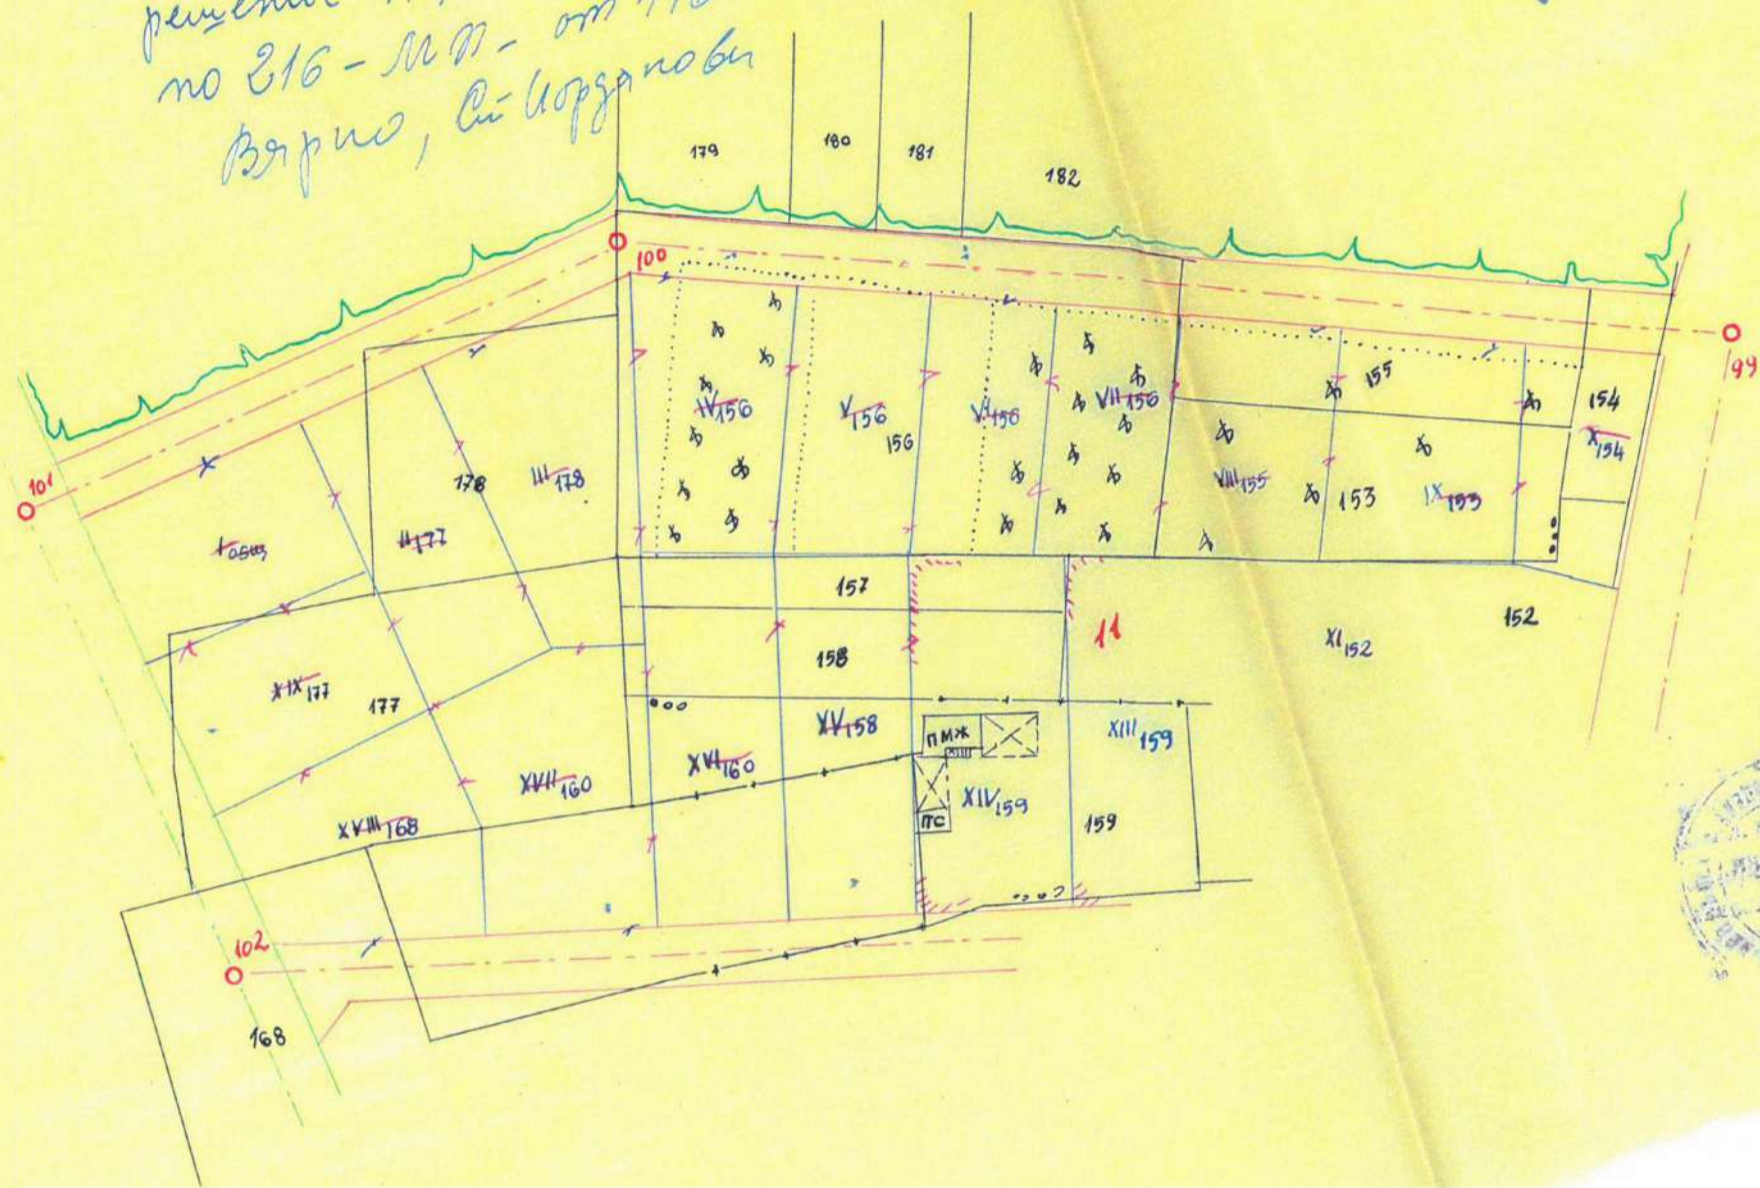 решение
по 216 - МП - от
Вярно, Ст Йорданови
179
180
181
182
100
101
99
102
IV156
V156
156
VI156
VII156
155
154
X154
VIII155
153
IX153
178
III178
II177
I общ
157
158
11
XI152
152
XIX177
177
XVIII168
XVII160
XVI160
XV158
ПМЖ
XIII159
XIV159
159
ПС
168